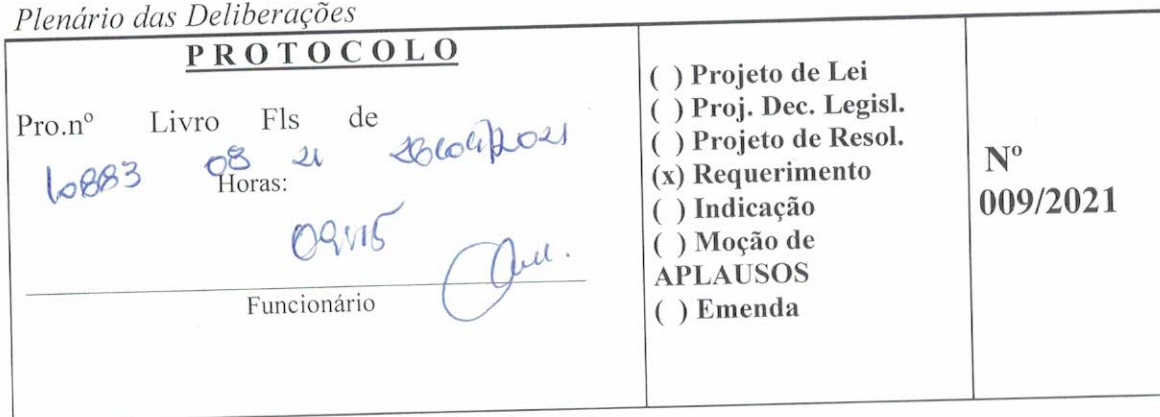 Plenário das Deliberações
PROTOCOLO
Pro.nº Livro Fls de
10883 08 21 26/04/2021
Horas:
09h15
Funcionário
( ) Projeto de Lei
( ) Proj. Dec. Legisl.
( ) Projeto de Resol.
(x) Requerimento
( ) Indicação
( ) Moção de
APLAUSOS
( ) Emenda
Nº
009/2021